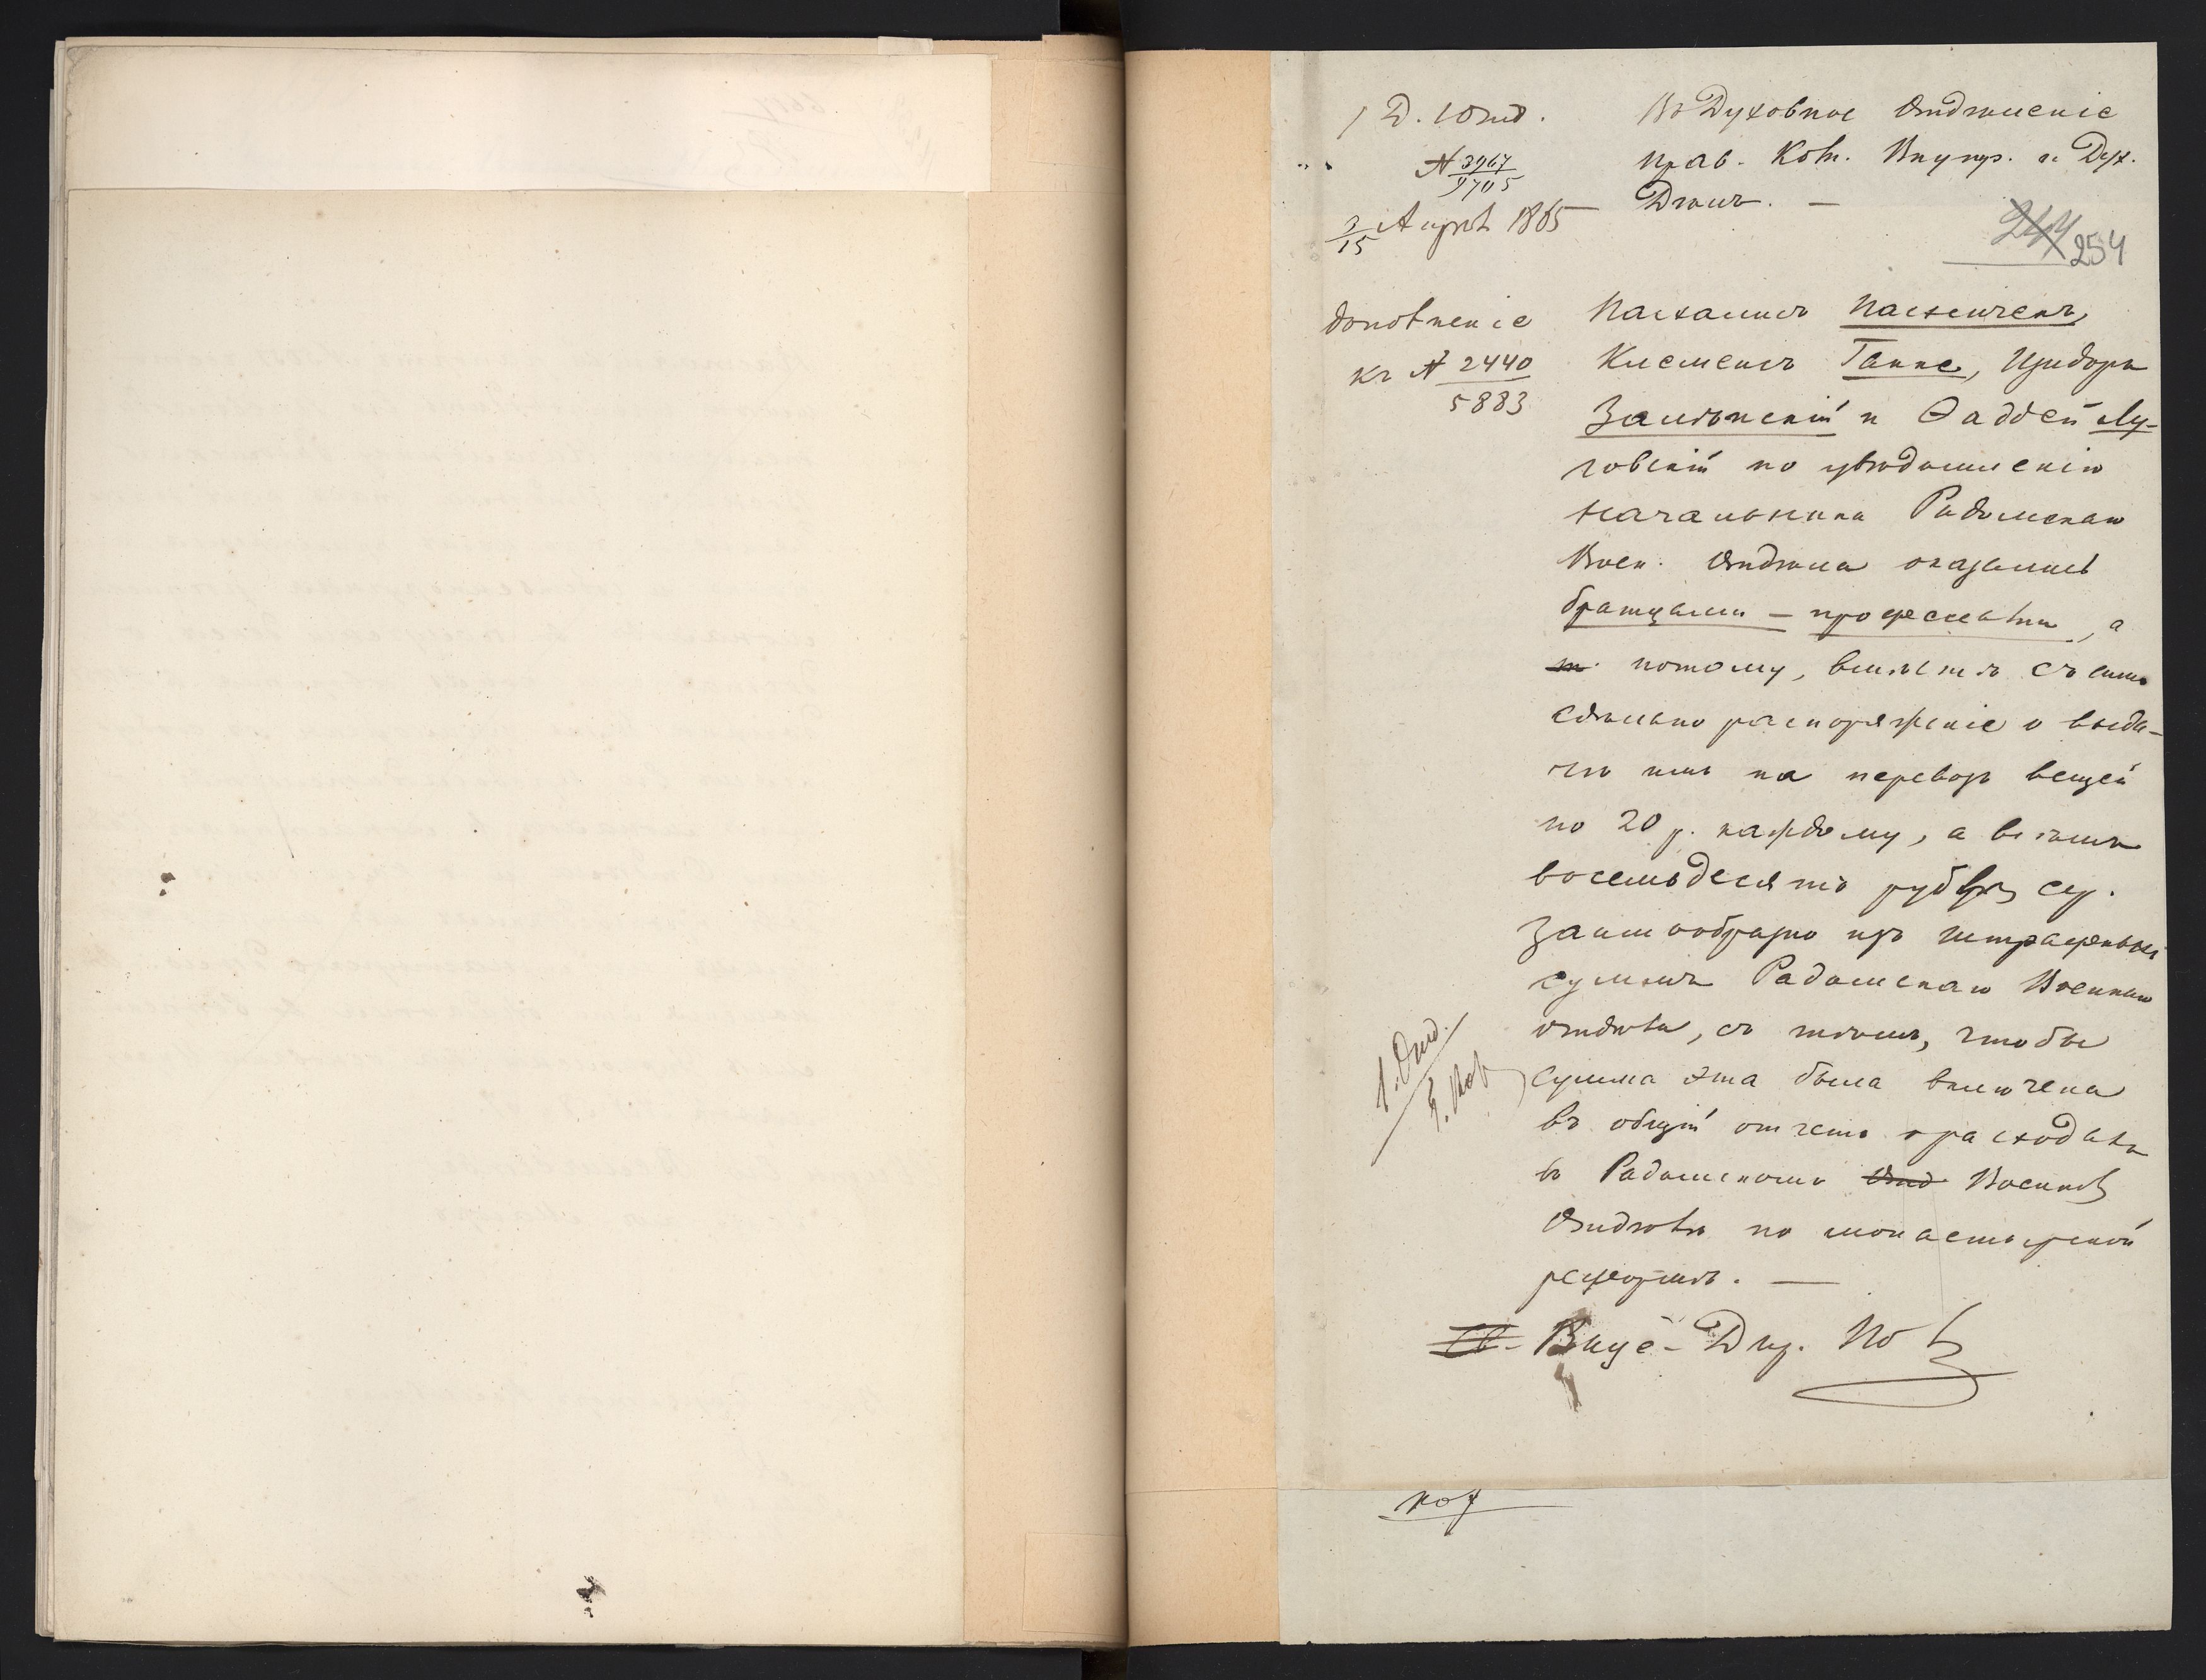 1 Д. 1 Отд.
№ 3967
9705
3/15 Апрѣл 1865
Въ Духовное Отдѣленіе
Прав. Ком. Внутр. и Дух.
Дѣлъ. —
244
254
дополненіе
къ № 2440
5883
Пасхалисъ
Клеменсъ Ганке, Изидоръ
Залѣнскій и Ѳаддей Лу-
говскій по увѣдомленію
Начальника Радомскаго
Воен. Отдѣла оказались
братцами – профессами, а
потому, вмѣстѣ съ симъ
сдѣлано распоряженіе о выда-
чѣ имъ на перевозъ вещей
по 20 р. каждому, а всѣмъ
восемьдесятъ рубл. сер.
Заимообразно изъ штрафныхъ
суммъ Радомскаго Военнаго
отдѣла, съ тѣмъ, чтобы
сумма эта была включена
въ общій отчетъ о расходахъ
въ Радомскомъ Отд Военном
Отдѣлѣ по монастырской
реформѣ. —
1. Отд.
Вице-Дир.